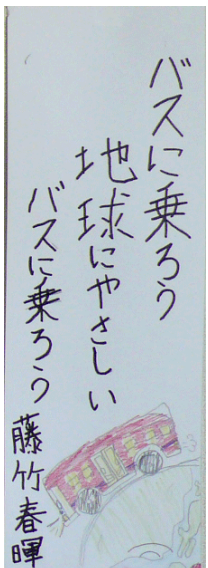 バスに乗ろう
地球にやさしい
バスに乗ろう
藤竹春暉